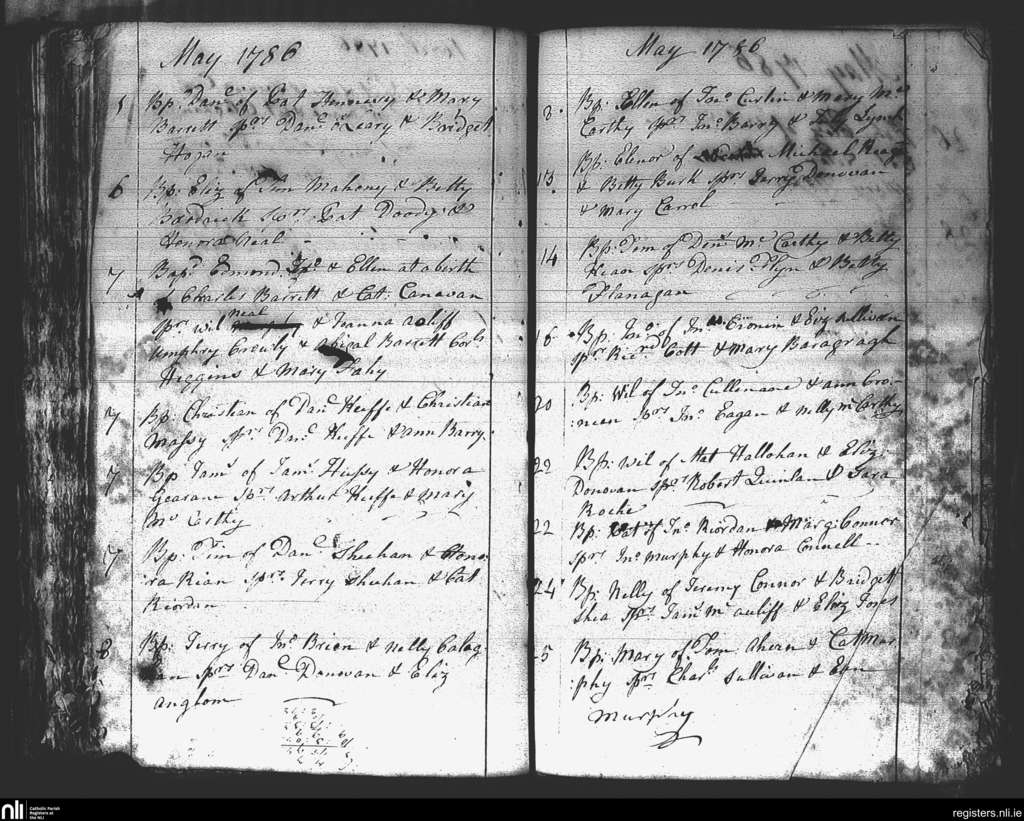 May 1786
5 Bp: Danl. of Pat Hennessy & Mary
Barrett sprs Danl. oLeary & Bridget
Hogan
6 Bp: Eliz of Tim Mahony & Betty
sprs. Pat Doody &
Honora Neal
7 Bapd. Edmond & Ellen at a birth
of Charles Barrett & Cat: Canavan
sprs. Wil Neal & Joanna acliff
umphry Creuly & abigal Barrett Corls
Higgins & Mary Fahy
7 Bp: Christian of Danl. Keiffe & Christian
Massy sprs Danl. Keiffe & ann Barry
7 Bp: Jams. of Jams. Hussy & Honora
Gearane sprs. arthur Keiffe & Mary
Mc Carthy
7 Bp: Tim of Danl. Sheehan & Hono
:ra Rian sprs. Terry Sheehan & Cat
Riordan
8 Bp: Terry of Jno. Brien & Nelly Calag
:an sprs Danl. Donovan & Eliz
anglom
May 1786
8. Bp: Ellen of Jno. Curtin & Mary Mc
Carthy sprs Jno. Barry &
13. Bp: Elenor of Michael
& Betty Burk sprs Derry Donovan
& Mary Carrol
14 Bp: Tim of Denis Mc Carthy & Betty
Kean sprs Denis Flyn & Betty
Flanagan
16 Bp. Jno. of Jno. Cronin & Eliz Sullivan
sprs Ricrd Cott & Mary Baragragh
20 Bp: Wil of Jno. Cullinane & ann Cro-
:neen sprs Jno. Eagan & Nelly Mc Carthy
22 Bp: Wil of Mat Hallohan & Eliz:
Donovan sprs Robert Quinlan & Sara
Roche
22 Bp: Cat of Jno. Riordan & Marg: Connor
sprs Jno. Murphy & Honora Connell
24 Bp: Nelly of Jeremy Connor & Bridget
Shea sprs. Jams. Mc auliff & Eliz Jones
25 Bp: Mary of Tom Ahern & Cat Mur
:phy sprs Chars. Sullivan &
Murphy
nli
Catholic Parish
Registers at
the NLI
registers.nli.ie